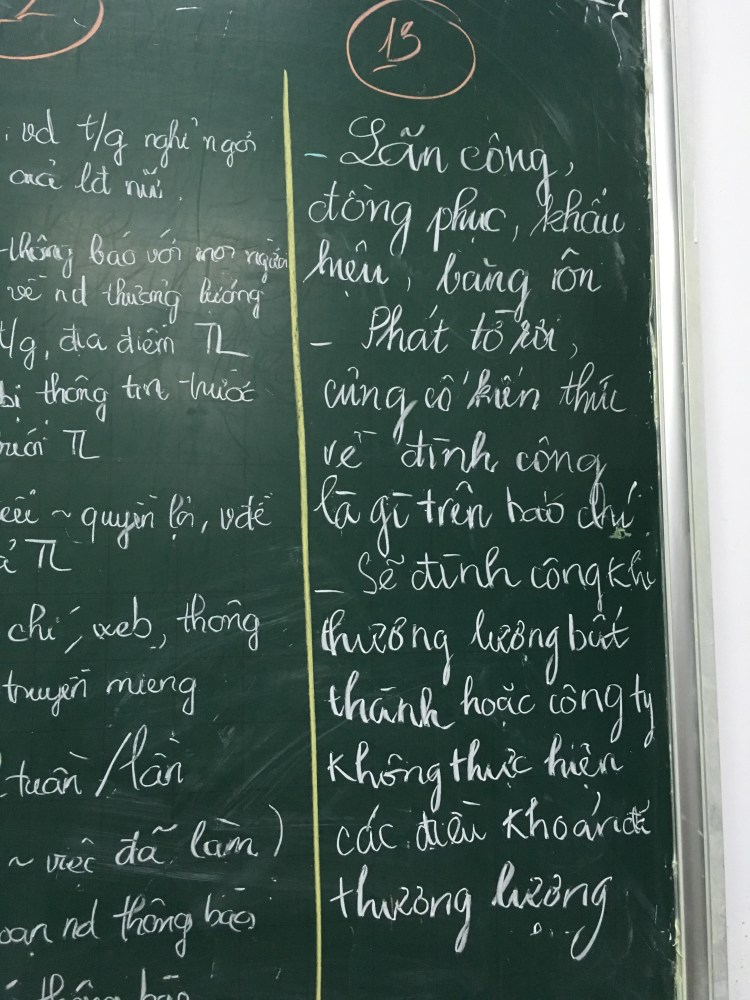 13
. vd t/g nghỉ ngơi
của lđ nữ.
thông báo với mọi người
về nd thương lượng
t/g, địa điểm TL
bị thông tin trước
TL
~ quyền lợi, vđề
TL
chí, web, thông
truyền miệng
tuần/lần
~ việc đã làm)
nd thông báo
thông báo
- Lãn công,
đồng phục, khẩu
hiệu, băng rôn
- Phát tờ rơi,
củng cố kiến thức
về đình công
là gì trên báo chí
- Sẽ đình công khi
thương lượng bất
thành hoặc công ty
không thực hiện
các điều khoản đã
thương lượng